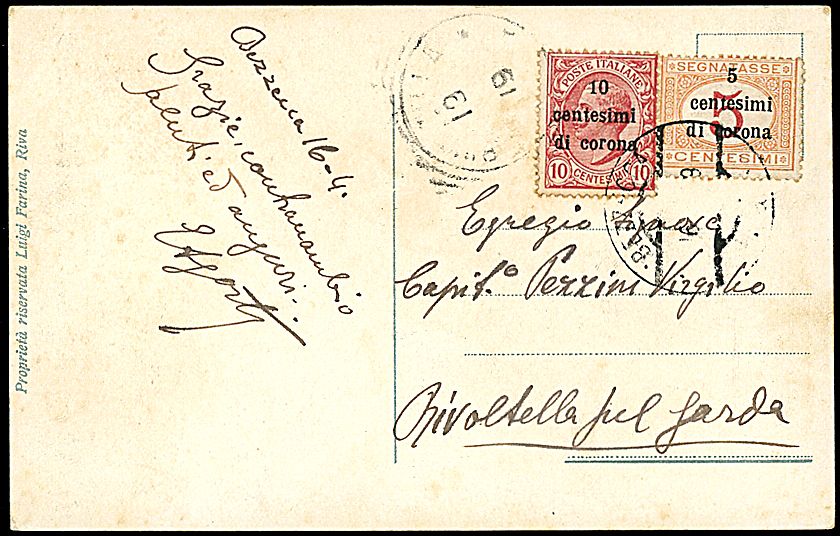 Proprietà riservata Luigi Farina, Riva
Bezzecca 16-4.
Grazie, contraccambio
saluti ed auguri.
19
19
POSTE ITALIANE
10
centesimi
di corona
10 CENTESIMI 10
SEGNATASSE
5
centesimi
di corona
5
CENTESIMI
Egregio Signore
Capit.o Pezzini Virgilio
Rivoltella sul Garda